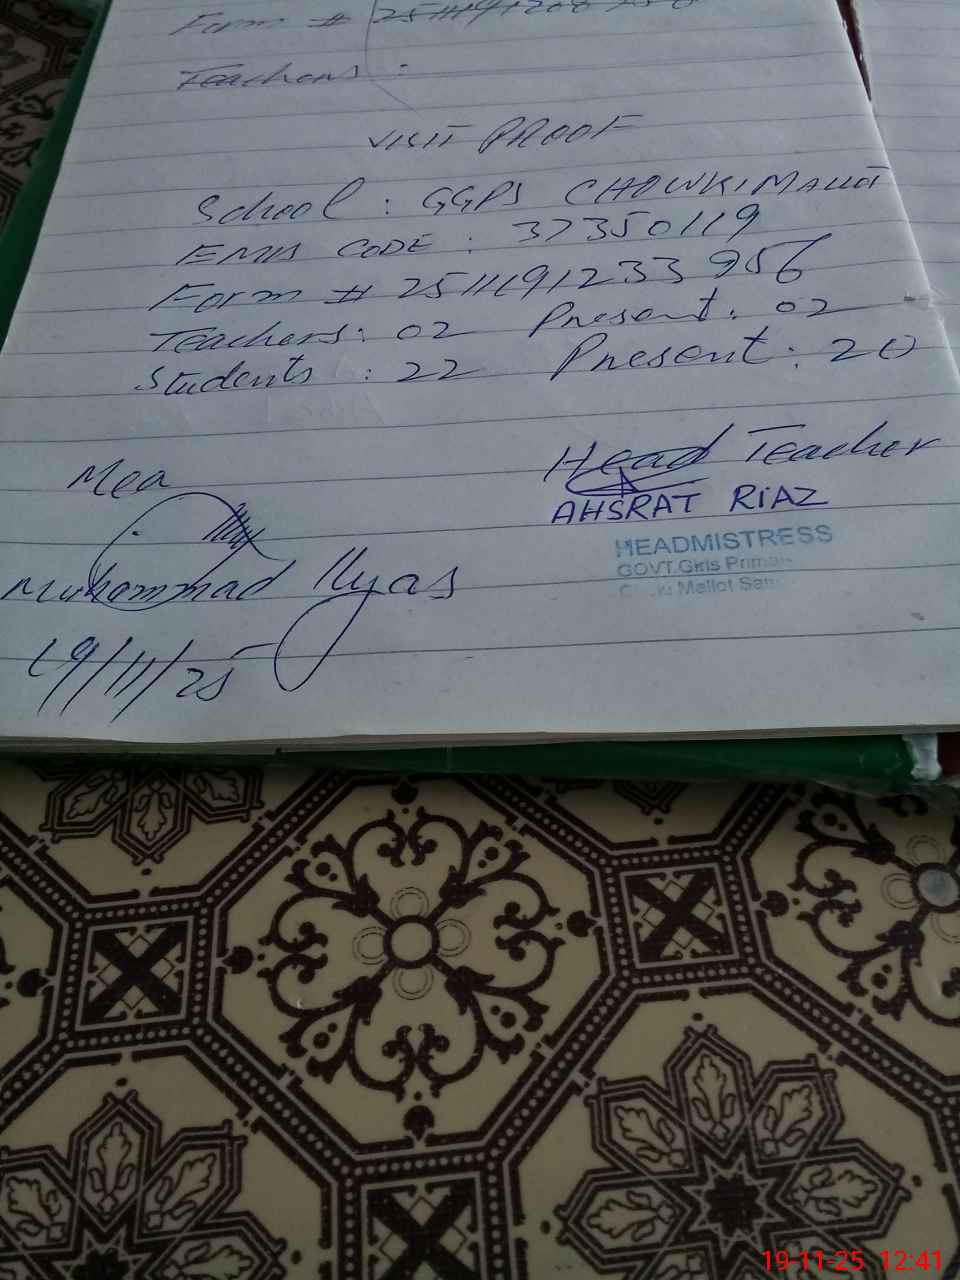 Form #
Teachers :
VISIT PROOF
School : GGPS CHOWKI MALLOT
EMIS CODE : 37350119
Form # 2511191233956
Teachers : 02 Present : 02
Students : 22 Present : 20
Mea
Head Teacher
AHSRAT RIAZ
HEADMISTRESS
GOVT. Girls
Mallot
Muhammad Ilyas
19/11/25
19-11-25 12:41